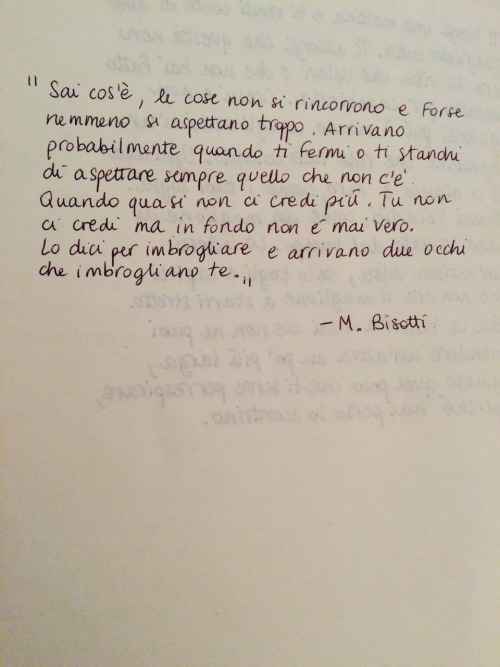 " Sai cos'è, le cose non si rincorrono e forse
nemmeno si aspettano troppo. Arrivano
probabilmente quando ti fermi o ti stanchi
di aspettare sempre quello che non c'è.
Quando quasi non ci credi più. Tu non
ci credi ma in fondo non è mai vero.
Lo dici per imbrogliare e arrivano due occhi
che imbrogliano te. "
- M. Bisotti